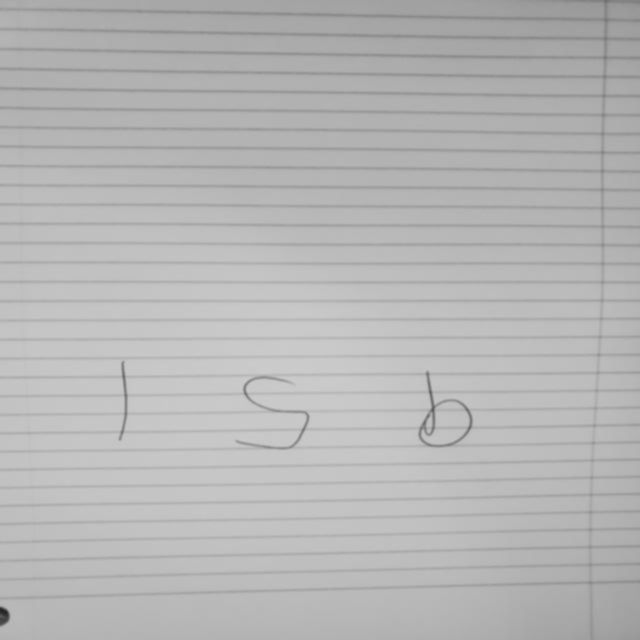 l s b